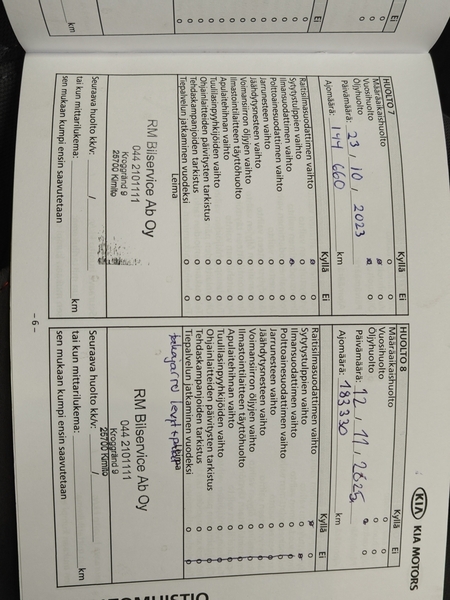 Ei
km
KIA KIA MOTORS
HUOLTO 7
Kyllä Ei
Määräaikaishuolto
Vuosihuolto
Öljyhuolto
Päivämäärä: 23, 10, 2023
Ajomäärä: 144 660 km
Kyllä Ei
Raitisilmasuodattimen vaihto
Sytytystulppien vaihto
Ilmansuodattimen vaihto
Polttoainesuodattimen vaihto
Jarrunesteen vaihto
Jäähdytysnesteen vaihto
Voimansiirron öljyjen vaihto
Ilmastointilaitteen täyttöhuolto
Apulaitehihnan vaihto
Tuulilasinpyyhkijöiden vaihto
Ohjainlaitteiden päivitysten tarkistus
Tehdaskampanjoiden tarkistus
Tiepalvelun jatkaminen vuodeksi
Leima
RM Bilservice Ab Oy
044 2101111
Kroggränd 9
25700 Kimito
Seuraava huolto kk/v: /
tai kun mittarilukema: km
sen mukaan kumpi ensin saavutetaan
HUOLTO 8
Kyllä Ei
Määräaikaishuolto
Vuosihuolto
Öljyhuolto
Päivämäärä: 12, 11, 2025
Ajomäärä: 183330 km
Kyllä Ei
Raitisilmasuodattimen vaihto
Sytytystulppien vaihto
Ilmansuodattimen vaihto
Polttoainesuodattimen vaihto
Jarrunesteen vaihto
Jäähdytysnesteen vaihto
Voimansiirron öljyjen vaihto
Ilmastointilaitteen täyttöhuolto
Apulaitehihnan vaihto
Tuulilasinpyyhkijöiden vaihto
Ohjainlaitteiden päivitysten tarkistus
Tehdaskampanjoiden tarkistus
Tiepalvelun jatkaminen vuodeksi
takajarru levyt +
RM Bilservice Ab Oy
044 2101111
Kroggränd 9
25700 Kimito
Seuraava huolto kk/v: /
tai kun mittarilukema: km
sen mukaan kumpi ensin saavutetaan
- 6 -